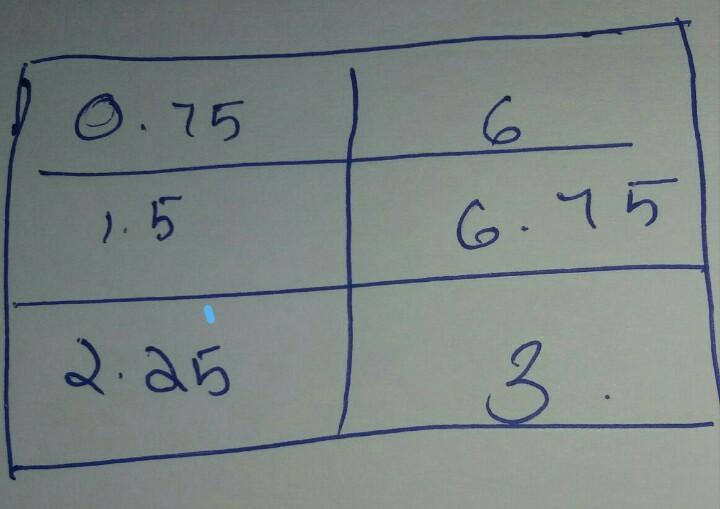 0.75 6
1.5 6.75
2.25 3.